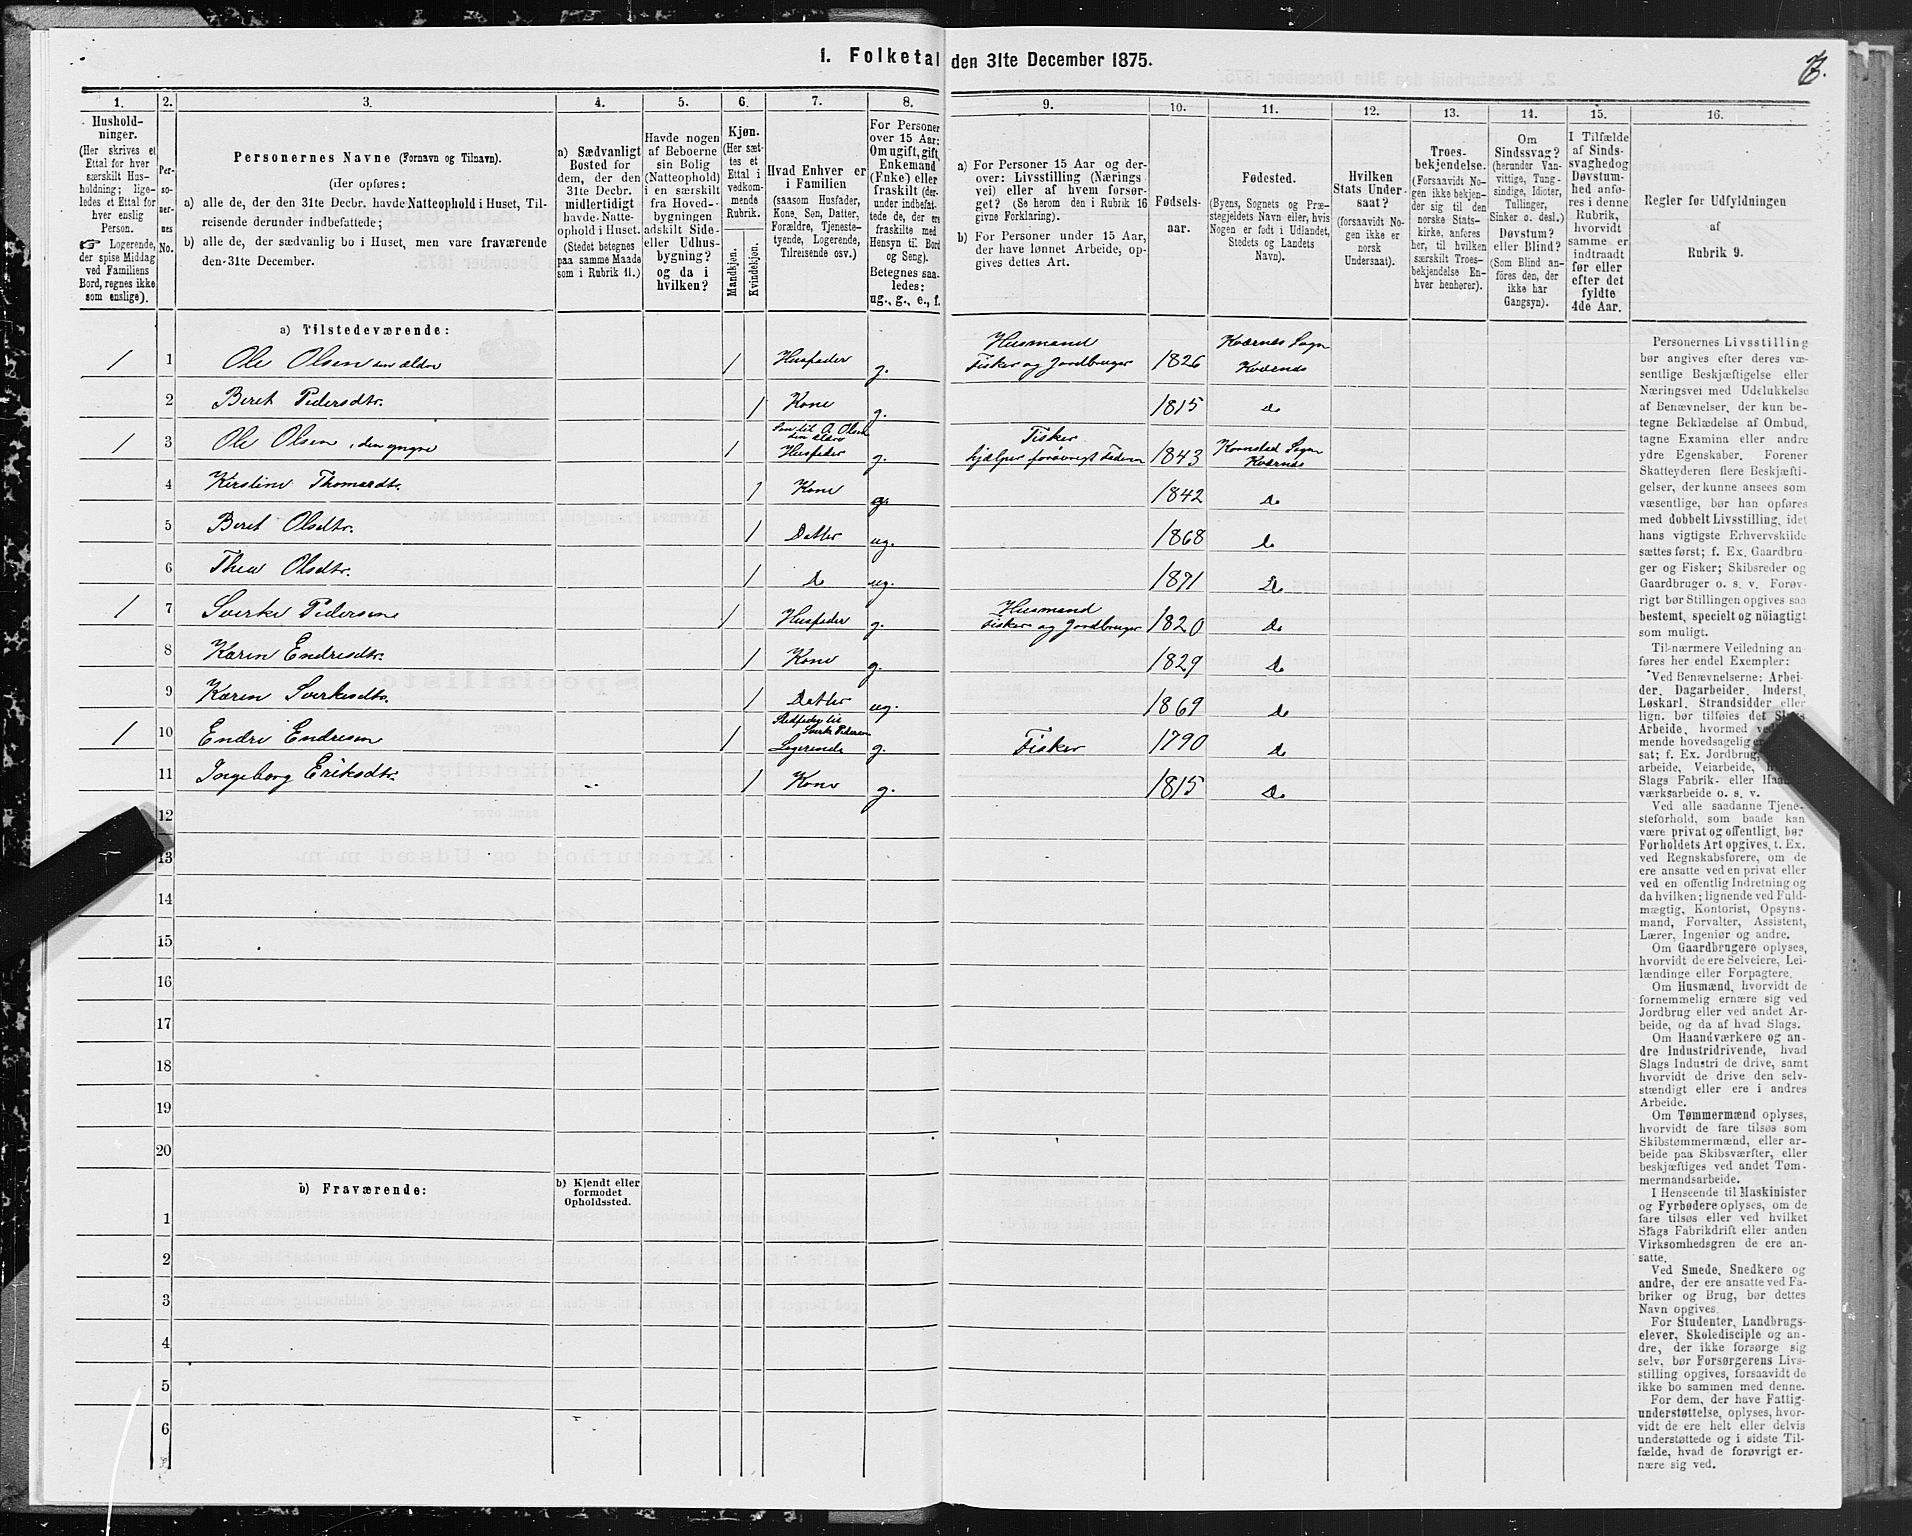 1. Folketal den 31te December 1875.
1.
2.
3.
4.
5.
6.
7.
8.
9.
10.
11.
12.
13.
14.
15.
16.
Hushold-
ninger.
(Her skrives et
Ettal for hver
særskilt Hus-
holdning; lige-
ledes et Ettal for
hver enslig
Person.
☞ Logerende,
der spise Middag
ved Familiens
Bord, regnes ikke
som enslige).
Per-
so-
ner-
nes
No.
Personernes Navne (Fornavn og Tilnavn).
(Her opføres:
a) alle de, der den 31te Decbr. havde Natteophold i Huset, Til-
reisende derunder indbefattede;
b) alle de, der sædvanlig bo i Huset, men vare fraværende
den 31te December.
a) Sædvanligt
Bosted for
dem, der den
31te Decbr.
midlertidigt
havde Natte-
ophold i Huset.
(Stedet betegnes
paa samme Maade
som i Rubrik 11.)
Havde nogen
af Beboerne
sin Bolig
(Natteophold)
i en særskilt
fra Hoved-
bygningen
adskilt Side-
eller Udhus-
bygning?
og da i
hvilken?
Kjøn.
(Her sæt-
tes et
Ettal i
vedkom-
mende
Rubrik.
Mandkjøn.
Kvindekjøn.
Hvad Enhver er
i Familien
(saasom Husfader,
Kone, Søn, Datter,
Forældre, Tjeneste-
tyende, Logerende,
Tilreisende osv.)
For Personer
over 15 Aar:
Om ugift, gift,
Enkemand
(Enke) eller
fraskilt (der-
under indbefat-
tede de, der ere
fraskilte med
Hensyn til Bord
og Seng).
Betegnes saa-
ledes:
ug., g., e., f.
a) For Personer 15 Aar og der-
over: Livsstilling (Nærings-
vei) eller af hvem forsør-
get? (Se herom den i Rubrik 16
givne Forklaring).
b) For Personer under 15 Aar,
der have lønnet Arbeide, op-
gives dettes Art.
Fødsels-
aar.
Fødested.
(Byens, Sognets og Præ-
stegjeldets Navn eller, hvis
Nogen er født i Udlandet,
Stedets og Landets
Navn).
Hvilken
Stats Under-
saat?
(forsaavidt No-
gen ikke er
norsk
Undersaat).
Troes-
bekjendelse.
(Forsaavidt No-
gen ikke bekjen-
der sig til den
norske Stats-
kirke, anføres
her, til hvilken
særskilt Troes-
bekjendelse En-
hver henhører).
Om
Sindssvag?
(herunder Van-
vittige, Tung-
sindige, Idioter,
Tullinger,
Sinker o. desl.)
Døvstum?
eller Blind?
(Som Blind an-
føres den, der
ikke har
Gangsyn).
I Tilfælde
af Sinds-
svaghed og
Døvstum-
hed anfø-
res i denne
Rubrik,
hvorvidt
samme er
indtraadt
før eller
efter det
fyldte
4de Aar.
Regler for Udfyldningen
af
Rubrik 9.
a) Tilstedeværende:
1 1 Ole Olsen den ældre 1 Husfader g. Husmand Fisker og Jordbruger 1826 Kværnes Sogn Kværnes
2 Beret Pedersdtr. 1 Kone g. 1815 Do
1 3 Ole Olsen, den yngre 1 Søn til O. Olsen den ældre Husfader g. Fisker hjælper forøvrigt Faderen 1843 Kornstad Sogn Kværnes
4 Kirstine Thomasdtr. 1 Kone g. 1842 Do
5 Beret Olsdtr. 1 Datter ug. 1868 Do
6 Thea Olsdtr. 1 Do ug. 1871 Do
1 7 Sverke Pedersen 1 Husfader g. Husmand Fisker og Jordbruger 1820 Do
8 Karen Endresdtr. 1 Kone g. 1829 Do
9 Karen Sverkesdtr. 1 Datter ug. 1869 Do
1 10 Endre Endresen 1 Stedfader til Sverke Pedersen Logerende g. Fisker 1790 Do
11 Ingeborg Eriksdtr. 1 Kone g. 1815 Do
12
13
14
15
16
17
18
19
20
b) Fraværende:
b) Kjendt eller
formodet
Opholdssted.
1
2
3
4
5
6
Personernes Livsstilling
bør angives efter deres væ-
sentlige Beskjæftigelse eller
Næringsvei med Udelukkelse
af Benævnelser, der kun be-
tegne Beklædelse af Ombud,
tagne Examina eller andre
ydre Egenskaber. Forener
Skatteyderen flere Beskjæfti-
gelser, der kunne ansees som
væsentlige, bør han opføres
med dobbelt Livsstilling, idet
hans vigtigste Erhvervskilde
sættes først; f. Ex. Gaardbru-
ger og Fisker; Skibsreder og
Gaardbruger o. s. v. Forøv-
rigt bør Stillingen opgives saa
bestemt, specielt og nöiagtigt
som muligt.
Til nærmere Veiledning an-
føres her endel Exempler:
Ved Benævnelserne: Arbei-
der, Dagarbeider, Inderst,
Løskarl, Strandsidder eller
lign. bør tilføies det Slags
Arbeide, hvormed
mende hovedsagelig
sat; f. Ex. Jordbrug,
arbeide, Veiarbeide,
Slags Fabrik- eller Haand-
værksarbeide o. s. v.
Ved alle saadanne Tjene-
steforhold, som baade kan
være privat og offentligt, bør
Forholdets Art opgives, f. Ex.
ved Regnskabsførere, om de
ere ansatte ved en privat eller
ved en offentlig Indretning og
da hvilken; lignende ved Fuld-
mægtig, Kontorist, Opsyns-
mand, Forvalter, Assistent,
Lærer, Ingeniør og andre.
Om Gaardbrugere oplyses,
hvorvidt de ere Selveiere, Lei-
lændinge eller Forpagtere.
Om Husmænd, hvorvidt de
fornemmelig ernære sig ved
Jordbrug eller ved andet Ar-
beide, og da af hvad Slags.
Om Haandværkere og an-
dre Industridrivende, hvad
Slags Industri de drive, samt
hvorvidt de drive den selv-
stændigt eller ere i andres
Arbeide.
Om Tømmermænd oplyses,
hvorvidt de fare tilsøs som
Skibstømmermænd, eller ar-
beide paa Skibsværfter, eller
beskjæftiges ved andet Tøm-
mermandsarbeide.
I Henseende til Maskinister
og Fyrbødere oplyses, om de
fare tilsøs eller ved hvilket
Slags Fabrikdrift eller anden
Virksomhedsgren de ere an-
satte.
Ved Smede, Snedkere og
andre, der ere ansatte ved Fa-
briker og Brug, bør dettes
Navn opgives.
For Studenter, Landbrugs-
elever, Skoledisciple og an-
dre, der ikke forsørge sig
selv, bør Forsørgerens Livs-
stilling opgives, forsaavidt de
ikke bo sammen med denne.
For dem, der have Fattig-
understøttelse, oplyses, hvor-
vidt de ere helt eller delvis
understøttede og i sidste Til-
fælde, hvad de forøvrigt er-
nære sig ved.